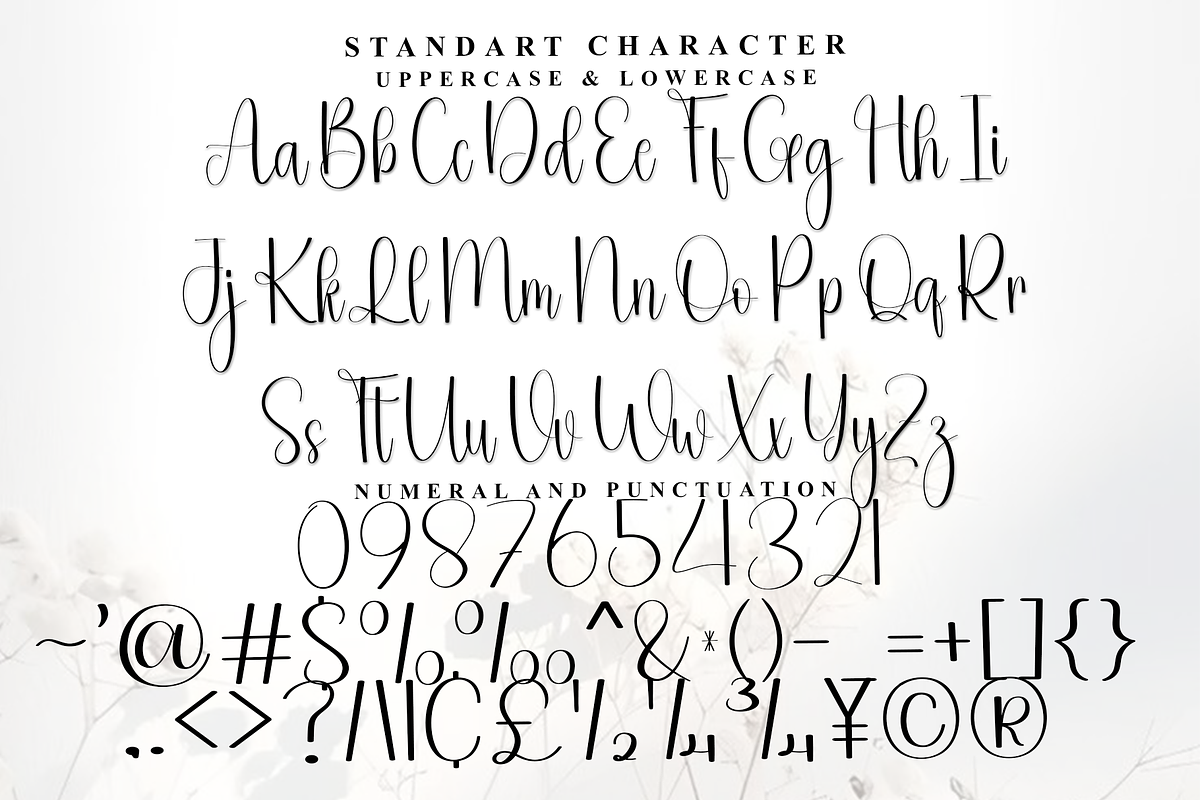 STANDART CHARACTER
UPPERCASE & LOWERCASE
Aa Bb Cc Dd Ee Ff Gg Hh Ii
Jj Kk Ll Mm Nn Oo Pp Qq Rr
Ss Tt Uu Vv Ww Xx Yy Zz
NUMERAL AND PUNCTUATION
0987654321
~'@#$%‰^&*()– =+[]{}
,.<>?/\|¢£½¼¾¥©®